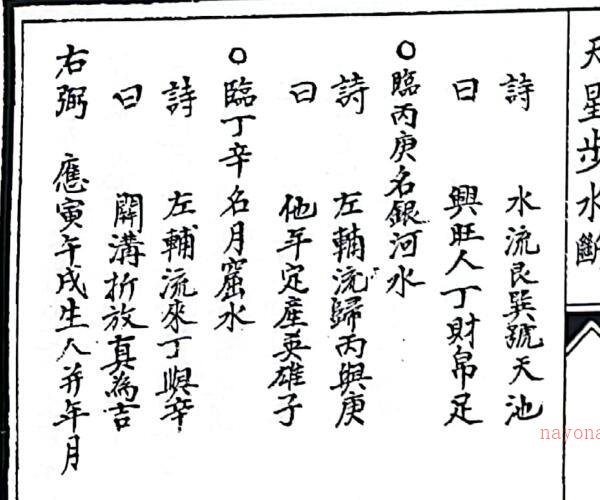 天星步水斷
詩曰 水流艮巽號天池
興旺人丁財帛足
○臨丙庚名銀河水
詩曰 左輔流歸丙與庚
他年定產英雄子
○臨丁辛名月窟水
詩曰 左輔流來丁與辛
開溝折放真為吉
右弼 應寅午戌生人并年月
nayona